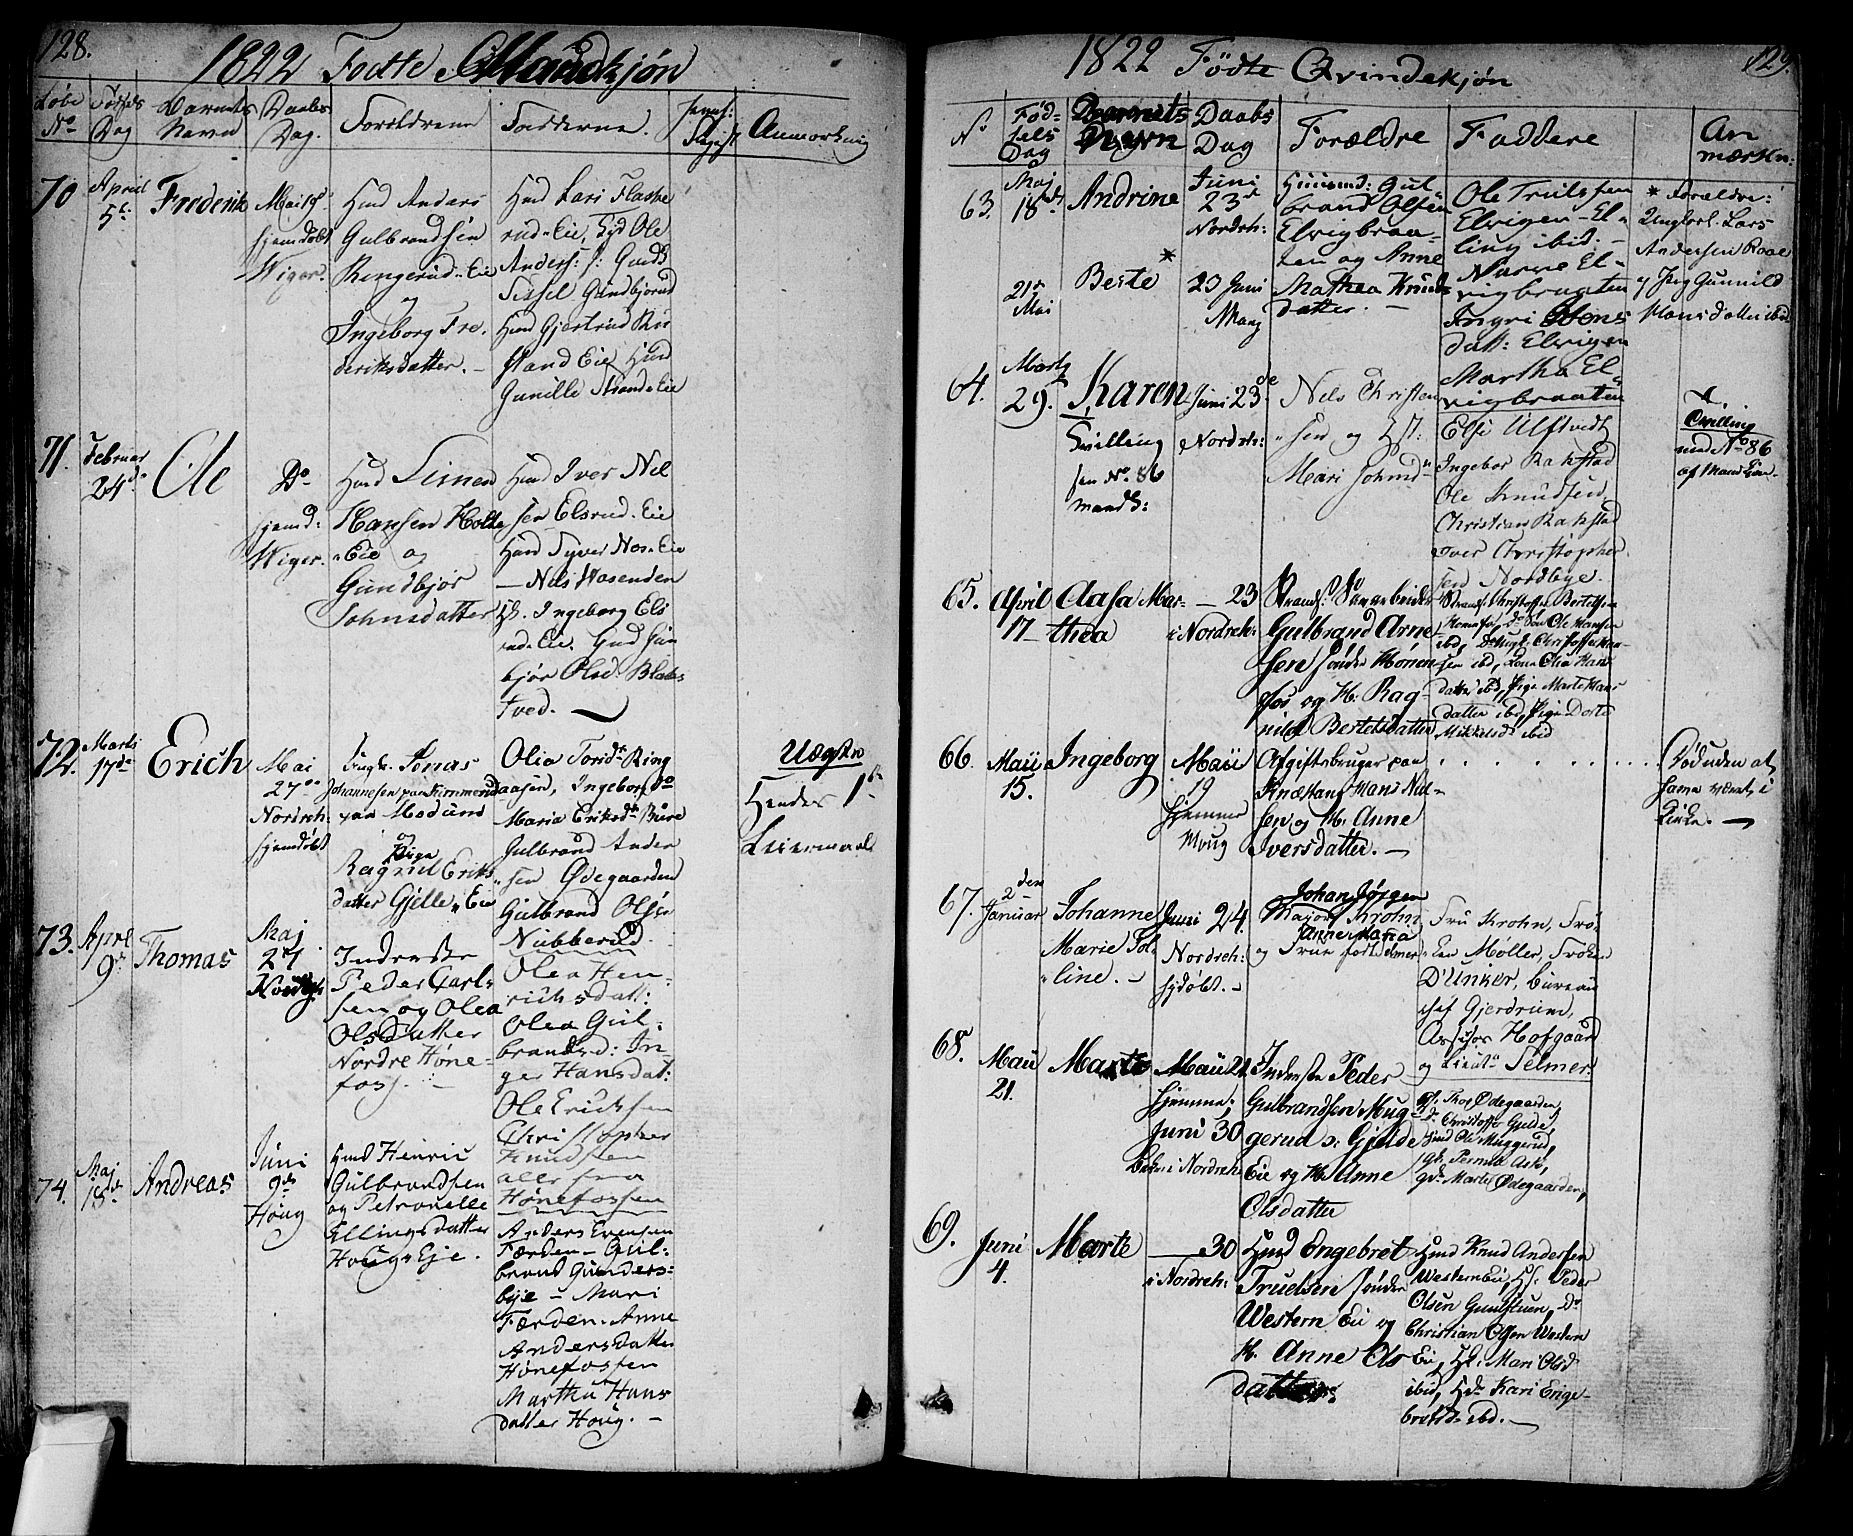 128.
1822 Födte Mandkjøn
Løbe No
Födsels Dag
Barnets Navn
Daabs Dag.
Forældrene
Fadderne.
Anmerkning
70
April 5t.
Frederik
Mai 19
hjemdøbt
Wiger.
Hmd Anders
Gulbrandsen
Ringerud-Eie
og
Ingeborg Fre-
deriksdatter. -
Hmd Lars Flaske
rud-Eie, Ole
Anders:
Sissel Gundbjorud
Hmd Gjertrud
Strand Eie, Hmd
Gunille Strand-Eie
71.
Februar 24de
Ole
Do
hjemd:
Wiger.
Hmd Simen
Hansen Holte
-Eie og
Gundbjør
Johnsdatter
Hmd Iver Nil
sen Elsrud-Eie
Hmd Syver Nos-Eie
- Nils Hasenden
Ingeborg Els
rud-Eie. Gmd Gun
bjør Olsd. Blaks
tved. -
72.
Marts 17de
Erich
Mai
27de
Nordreh:
hjemdøbt
Ungk. Jonas
Johannesen paa
paa Modum
og
Pige
Ragnil Eriks
datter Gjelle-Eie
Olia Tordsd. Ring
aasen, Ingeborg Do
Maria Eriksdr Bure
Gulbrand Ander
sen Ødegaarden
Gulbrand Olsen
Nubberud.
Uægte
Hendes 1ste
Leiermaal
73.
Apr. 9de
Thomas
Maj
27
Inderste
Peder Carl-
sen og Olea
OlsDatter
Nordre Høne-
foss. -
Olea Hen-
richsdatt:
Olea Gul-
brandsd: In-
ger Hansdat:
Ole Ericksen
Christopher
Knudsen
alle fra
Hønefossen
74.
Maj 18de
Andreas
Juni
9de
Houg
Hmd Henric
Gulbrandsen
og Petronelle
Ellingsdatter
Houg-Eje.
Anders Evensen
Færden - Gul-
brand Gunders-
bye - Mari
Færden. Anne
Andersdatter
Hønefossen
Martha Hans
datter Houg. -
129.
1822 Födte Qvindekjøn
No
Föd-
sels
Dag
Barnets
Navn
Daabs
Dag
Forældre
Faddere
An
mærkn:
63.
Maj
18de
Andrine
Juni
23de
Nordreh:
Huusmd: Gul-
brand Olsen
Elvigbraa-
ten og Anne
Mathea Knuds
datter. -
Ole Trulssen
Elvigen - El-
ling ibid. -
Narve El-
vigbraaten
Ingri Obens
datt: Elvigen
Martha El-
vigbraaten
* Forældre:
Ungkarl. Lars
Andersen Raae
og Pig Gunnild
Hansdatter ibid
21de
Mai
Berte *
23 Juni
64.
Marts
29.
Karen
Tvilling
fra No. 86
mands:
Juni 23de
Nordreh:
Nils Christen
-sen og Hst:
Mari Johnsd.
Else Ulftvedt
Ingebor Rakstad
Ole Knudsen
Christian Rakstad
over Christopher
sen Nordbye.
Tvilling
med No 86
af Mandkiøn-
65.
April
17
Aasa Mar-
thea
- 23
i Nordreh:
Gulbrand Arne
sen søndre Hønen-
fos og H. Rag-
nild Bertelsdatter
Christoffer Bertelsen
Hønenfos, Ole Hansen
ibd, Christoffer Han-
sen ibd, Kone Olia Hans
datter ibd, Pige Marte Hans
datter ibd, Pige Dorte
Mikkelsd. ibid
66.
Maii
15.
Ingeborg
Maii
19
hjemme
Afgiftsbruger paa
Knæstang Hans Niel-
sen og H. Anne
Iversdatter. -
. . . . . . . . .
Död uden at
have været i
Kirke. -
67.
2den
Januar
Johanne
Marie Jol-
line. -
Juni 24.
Nordreh:
hjdøbt. -
Johan Jørgen
Major Krohn
Anne Maria
og Frue født
Fru Krohn, Frø-
ken Møller, Frøken
D'Unker, Bureau
chef Gjerdrum,
Assessor Hofgaard
og Lieut. Selmer.
68.
Maii
21.
Marte
Maii 21,
hjemme,
Juni 30
i Nordreh.
Inderste Peder
Gulbrandsen Mug-
gerud s: Gjelde
Eie og H. Anne
Olsdatter
Thor Ødegaarden,
Christoffer Gjelde,
Hmd Ole Muggerud,
gk. Pernille Ask,
gdr. Marte Ødegaarden,
69.
Juni
4.
Marte
- 30
i Nordreh:
Hmd Engebret
Truelsen søndre
Western Eie og
H. Anne Ols
datter:
Hmd Knud Andersen
Western Eie, Hf. Peder
Olsen Gunstuen, Do
Christian Olsen Western
Eie, Hf: Mari Olsd
ibid, Hdr Kari Enge-
bretsd. ibd. -